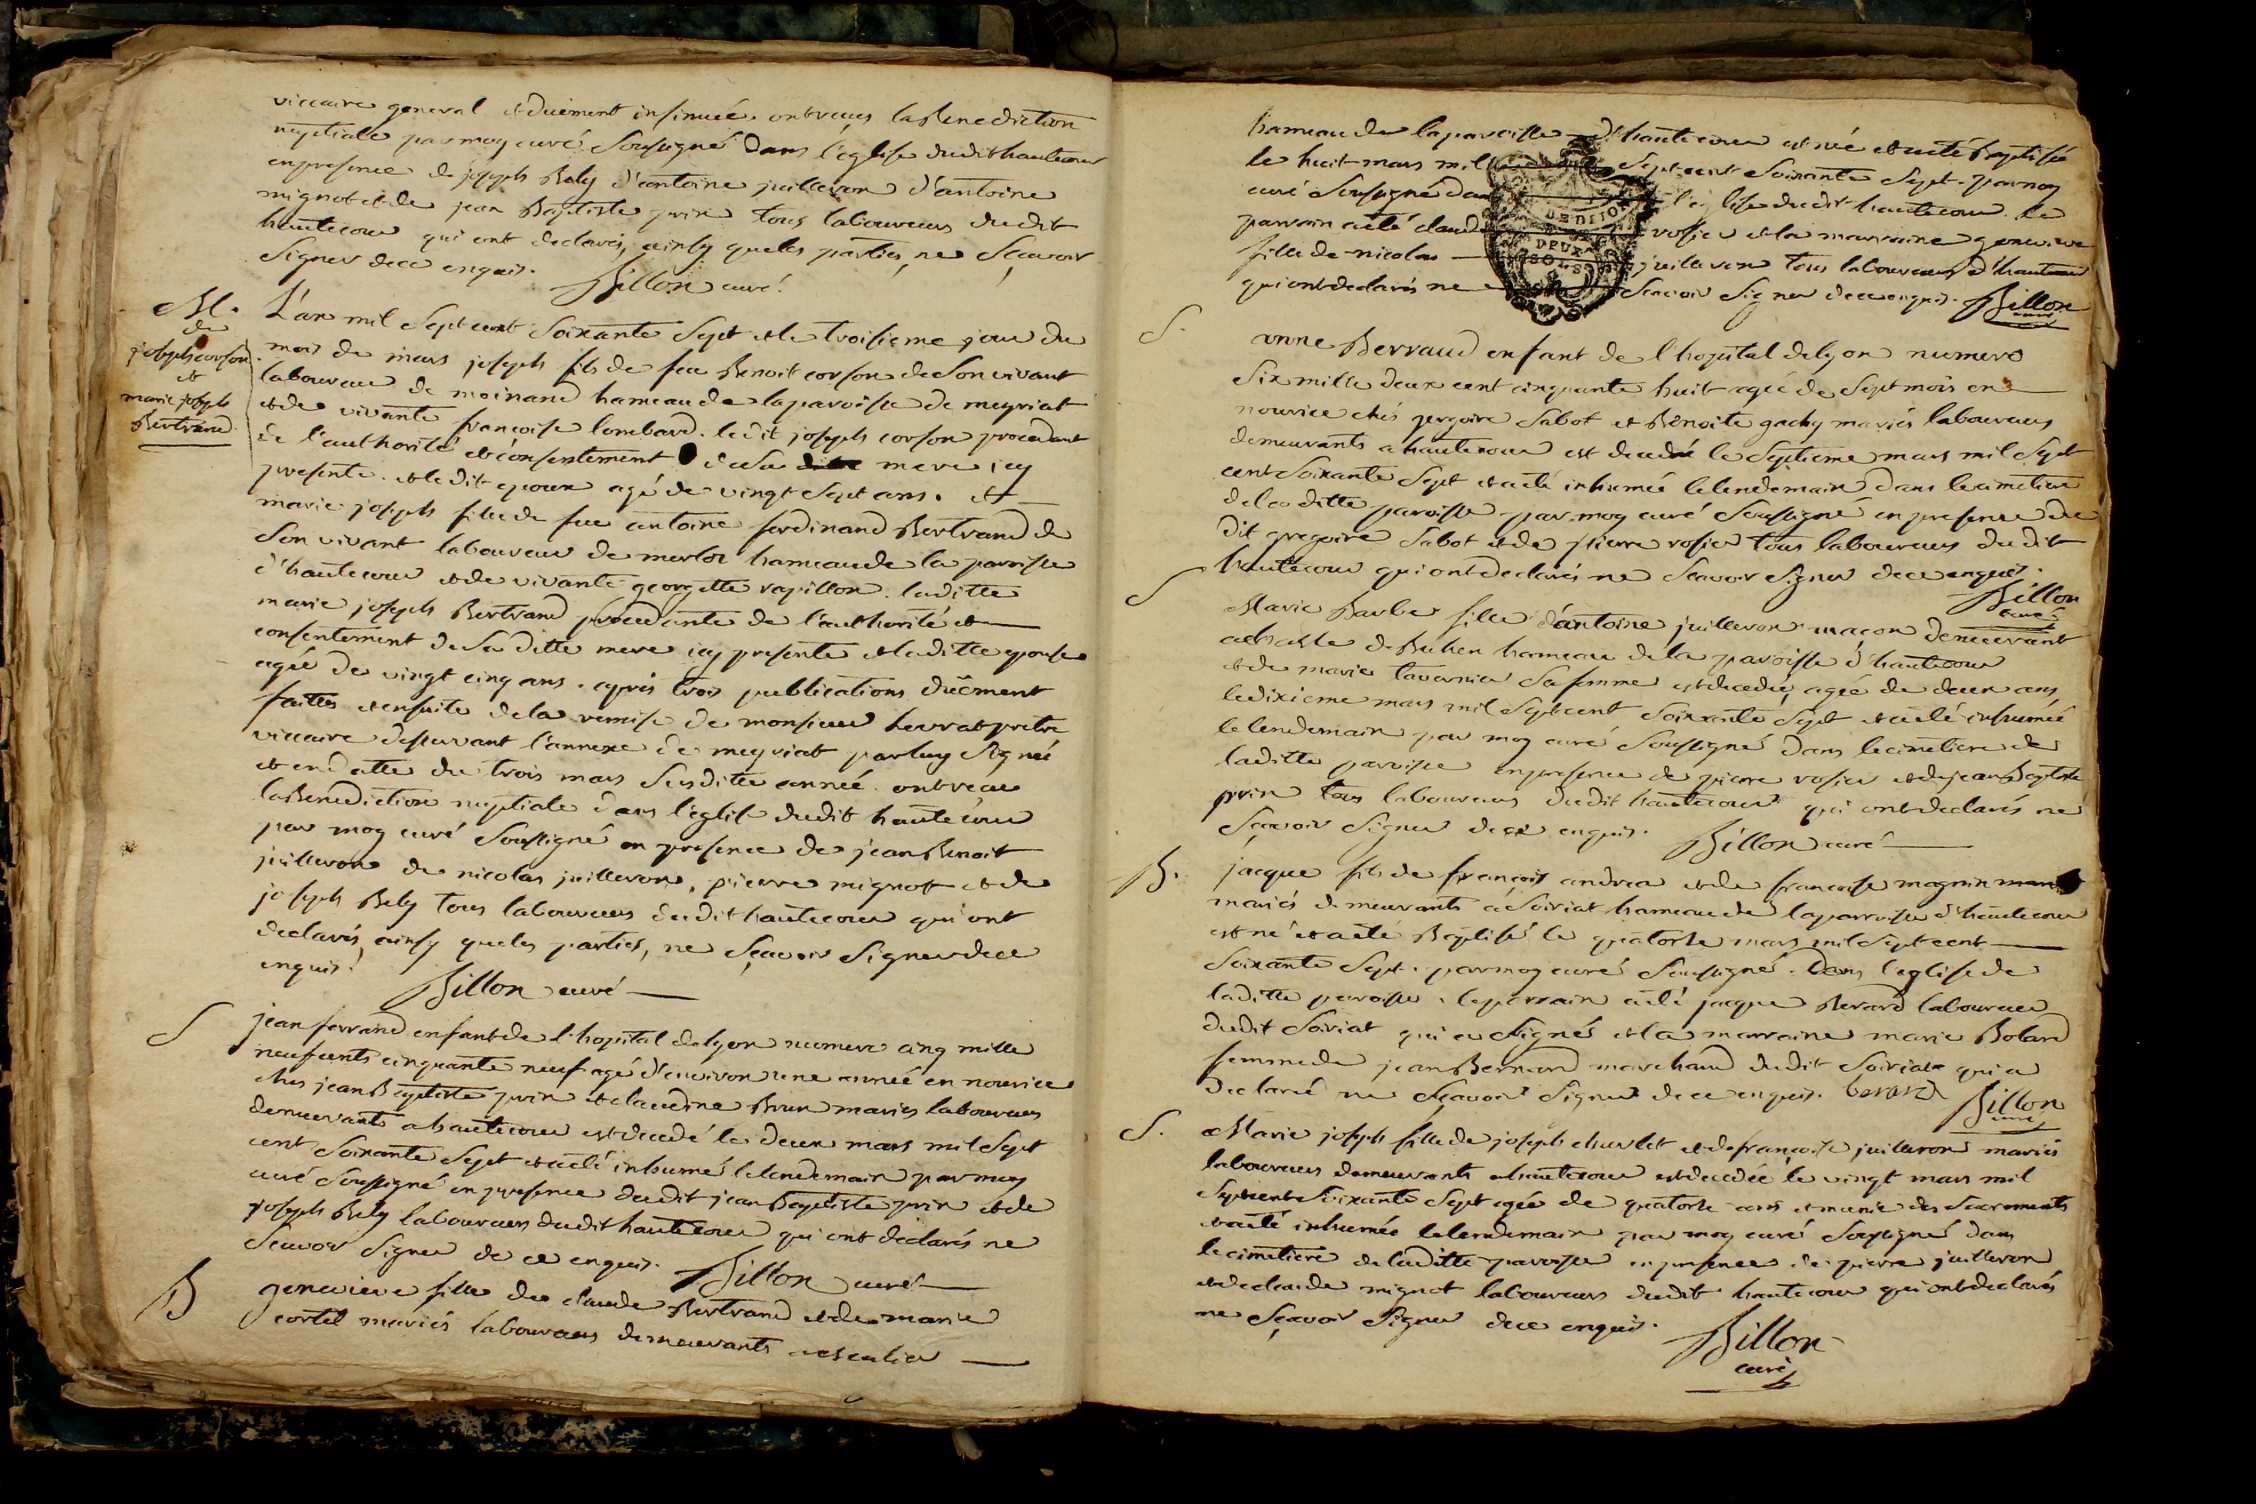 viccaire general et duëment insinuée. ont reçus la Benediction
nuptiale par moy curé Soussigné Dans l'eglise dudit hautecour
en presence de joseph Bely d'antoine juilleron d'antoine
mignot et de jean Baptiste prin tous laboureurs dudit
hautecour qui ont declarés, ainsy que les parties, ne Sçavoir
Signer de ce enquis. Billon curé.
M.
de
joseph corson
et
marie joseph
Bertrand.
L'an mil Sept cent Soixante Sept et le troisieme jour du
mois de mars joseph fils de feu Benoit corson de Son vivant
laboureur de moinand hameau de la paroisse de meyriat
et de vivante françoise lombard. le dit joseph corson procedant
de l'authorité et consentement de Sa mere icy
presente. et le dit epoux agé de vingt Sept ans. et
marie joseph fille de feu antoine ferdinand Bertrand de
Son vivant laboureur de merloz hameau de la paroisse
d'hautecour et de vivante georgette rapillon. laditte
marie joseph Bertrand procedante de l'authorité et
consentement de Sa ditte mere icy presente et laditte epouse
agée de vingt cinq ans. après trois publications duëment
faittes et ensuite de la remise de monsieur pretre
viccaire desservant l'annexe de meyriat par luy Signée
et en datte du trois mars Susditte année. ont reçue
la Benediction nuptiale dans l'eglise dudit hautecour
par moy curé Soussigné en presence de jean Benoit
juilleron de nicolas juilleron, pierre mignot et de
joseph Bely tous laboureurs dudit hautecour qui ont
declarés, ainsy que les parties, ne Sçavoir Signer de ce
enquis.
Billon curé
S
jean ferrand enfant de l'hopital de lyon numero cinq mille
neuf cents cinquante neuf agé d'environ une année en nourice
chés jean Baptiste prin et claudine Brun mariés laboureurs
demeurants a hautecour est decedé le deux mars mil Sept
cent Soixante Sept et a été inhumé le lendemain par moy
curé Soussigné en presence dudit jean Baptiste prin et de
joseph Bely laboureurs dudit hautecour qui ont declarés ne
Scavoir Signer de ce enquis. Billon curé
B
genevieve fille de claude Bertrand et de marie
cortel mariés laboureurs demeurants
hameau de la paroisse d'hautecour est née et a eté Baptisée
le huit mars mil Sept cent Soixante Sept. par moy
curé Soussigné dans l'eglise dudit hautecour. le
parrain a été claude rosier et la marraine genevieve
fille de nicolas juilleron tous laboureurs d'hautecour
qui ont declarés ne Scavoir Signer de ce enquis. Billon
curé
DE DIJON
DEUX
SOLS
S.
anne Berraud enfant de l'hopital de lyon numero
Six mille deux cent cinquante huit agée de Sept mois en
nourice chés gregoire Sabot et Benoite gachy mariés laboureurs
demeurants a hautecour est decedée le Septieme mars mil Sept
cent Soixante Sept et a été inhumée le lendemain dans le cimetiere
de la ditte paroisse par moy curé Soussigné en presence du
dit gregoire Sabot et de pierre rosier tous laboureurs du dit
hautecour qui ont declarés ne Scavoir Signer de ce enquis.
Billon
curé
S
Marie Barbe fille d'antoine juilleron maçon demeurant
hameau de la paroisse d'hautecour
et de marie tavernier Sa femme est decedée, agée de deux ans,
le dixieme mars mil Sept cent Soixante Sept et a été inhumée
le lendemain par moy curé Soussigné dans le cimetiere de
laditte paroisse en presence de pierre rosier et de jean Baptiste
prin tous laboureurs dudit hautecour qui ont declarés ne
Sçavoir Signer de ce enquis. Billon curé
B.
jacque fils de françois andrea et de françoise magnin
mariés demeurants a Soiriat hameau de la parroisse d'hautecour
est né et a eté Baptisé le quatorse mars mil Sept cent
Soixante Sept. par moy curé Soussigné. Dans l'eglise de
laditte paroisse. le parrain a été jacque Berard laboureur
dudit Soiriat qui a Signé et la marraine marie Bolard
femme de jean Bernard marchand dudit Soiriat qui a
declarée ne Sçavoir Signer de ce enquis. berard Billon
curé
S.
Marie joseph fille de joseph charlet et de françoise juilleron mariés
laboureurs demeurants a hautecour est decedée le vingt mars mil
Sept cent Soixante Sept agée de quatorse ans et munie des Sacrements
et a été inhumée le lendemain par moy curé Soussigné dans
le cimetiere de laditte paroisse en presence de pierre juilleron
et de claude mignot laboureurs dudit hautecour qui ont declarés
ne Sçavoir Signer de ce enquis.
Billon
curé